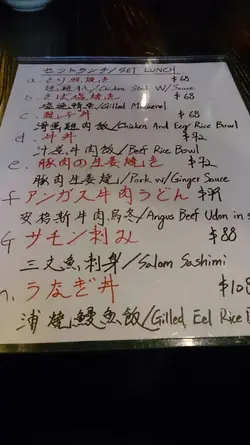 セットランチ/SET LUNCH
a. とり照焼き $68
/Chicken Steak W/ Sauce
b. さば塩焼き $68
塩燒鯖魚/Gilled Mackerel
c. 親子丼 $68
滑蛋雞肉飯/Chicken And Eeg Rice Bowl
d. 牛丼 $72
汁煮牛肉飯/Beef Rice Bowl
e. 豚肉の生姜焼き $72
豚肉生姜燒/Pork W/Ginger Sauce
f アンガス牛肉うどん $99
安格斯牛肉烏冬/Angus Beef Udon in s
G サモン刺み $88
三文魚刺身/Salom Sashimi
h. うなぎ丼 $108
蒲燒鰻魚飯/Gilled Eel Rice